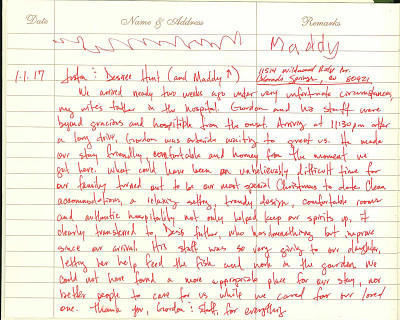 Date Name & Address Remarks
Maddy
1.1.17 Joston & Desiree Hunt (and Maddy ↑) 11514 Wildwood Ridge Dr.
Colorado Springs, CO 80921
We arrived nearly two weeks ago under very unfortunate circumstances,
my wifes father in the hospital. Gordon and his staff were
beyond gracious and hospitible from the onset. Arriving at 11:30 pm after
a long drive, Gordon was outside waiting to greet us. He made
our stay friendly, comfortable and homey from the moment we
got here. What could have been an unbelievably difficult time for
our family turned out to be our most special Christmas to date. Clean
accommodations, a relaxing setting, trendy design, comfortable rooms
and authentic hospitality not only helped keep our spirits up, it
clearly transferred to Desis father, who has done nothing but improve
since our arrival. His staff was so very giving to our daughter,
letting her help feed the fish and work in the garden. We
could not have found a more appropriate place for our stay, nor
better people to care for us while we cared for our loved
one. Thank you, Gordon & staff, for everything